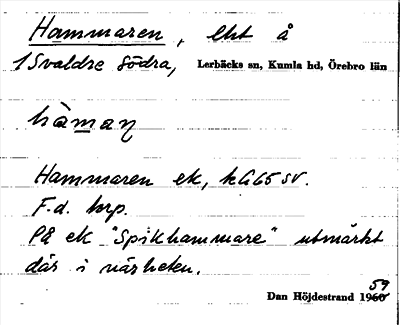 Hammaren, lht å
1 Svaldre södra, Lerbäcks sn, Kumla hd, Örebro län
hàmaɳ
Hammaren ek, kG65 SV.
F.d. torp.
På ek "Spikhammare" utmärkt
där i närheten.
Dan Höjdestrand 1960 59